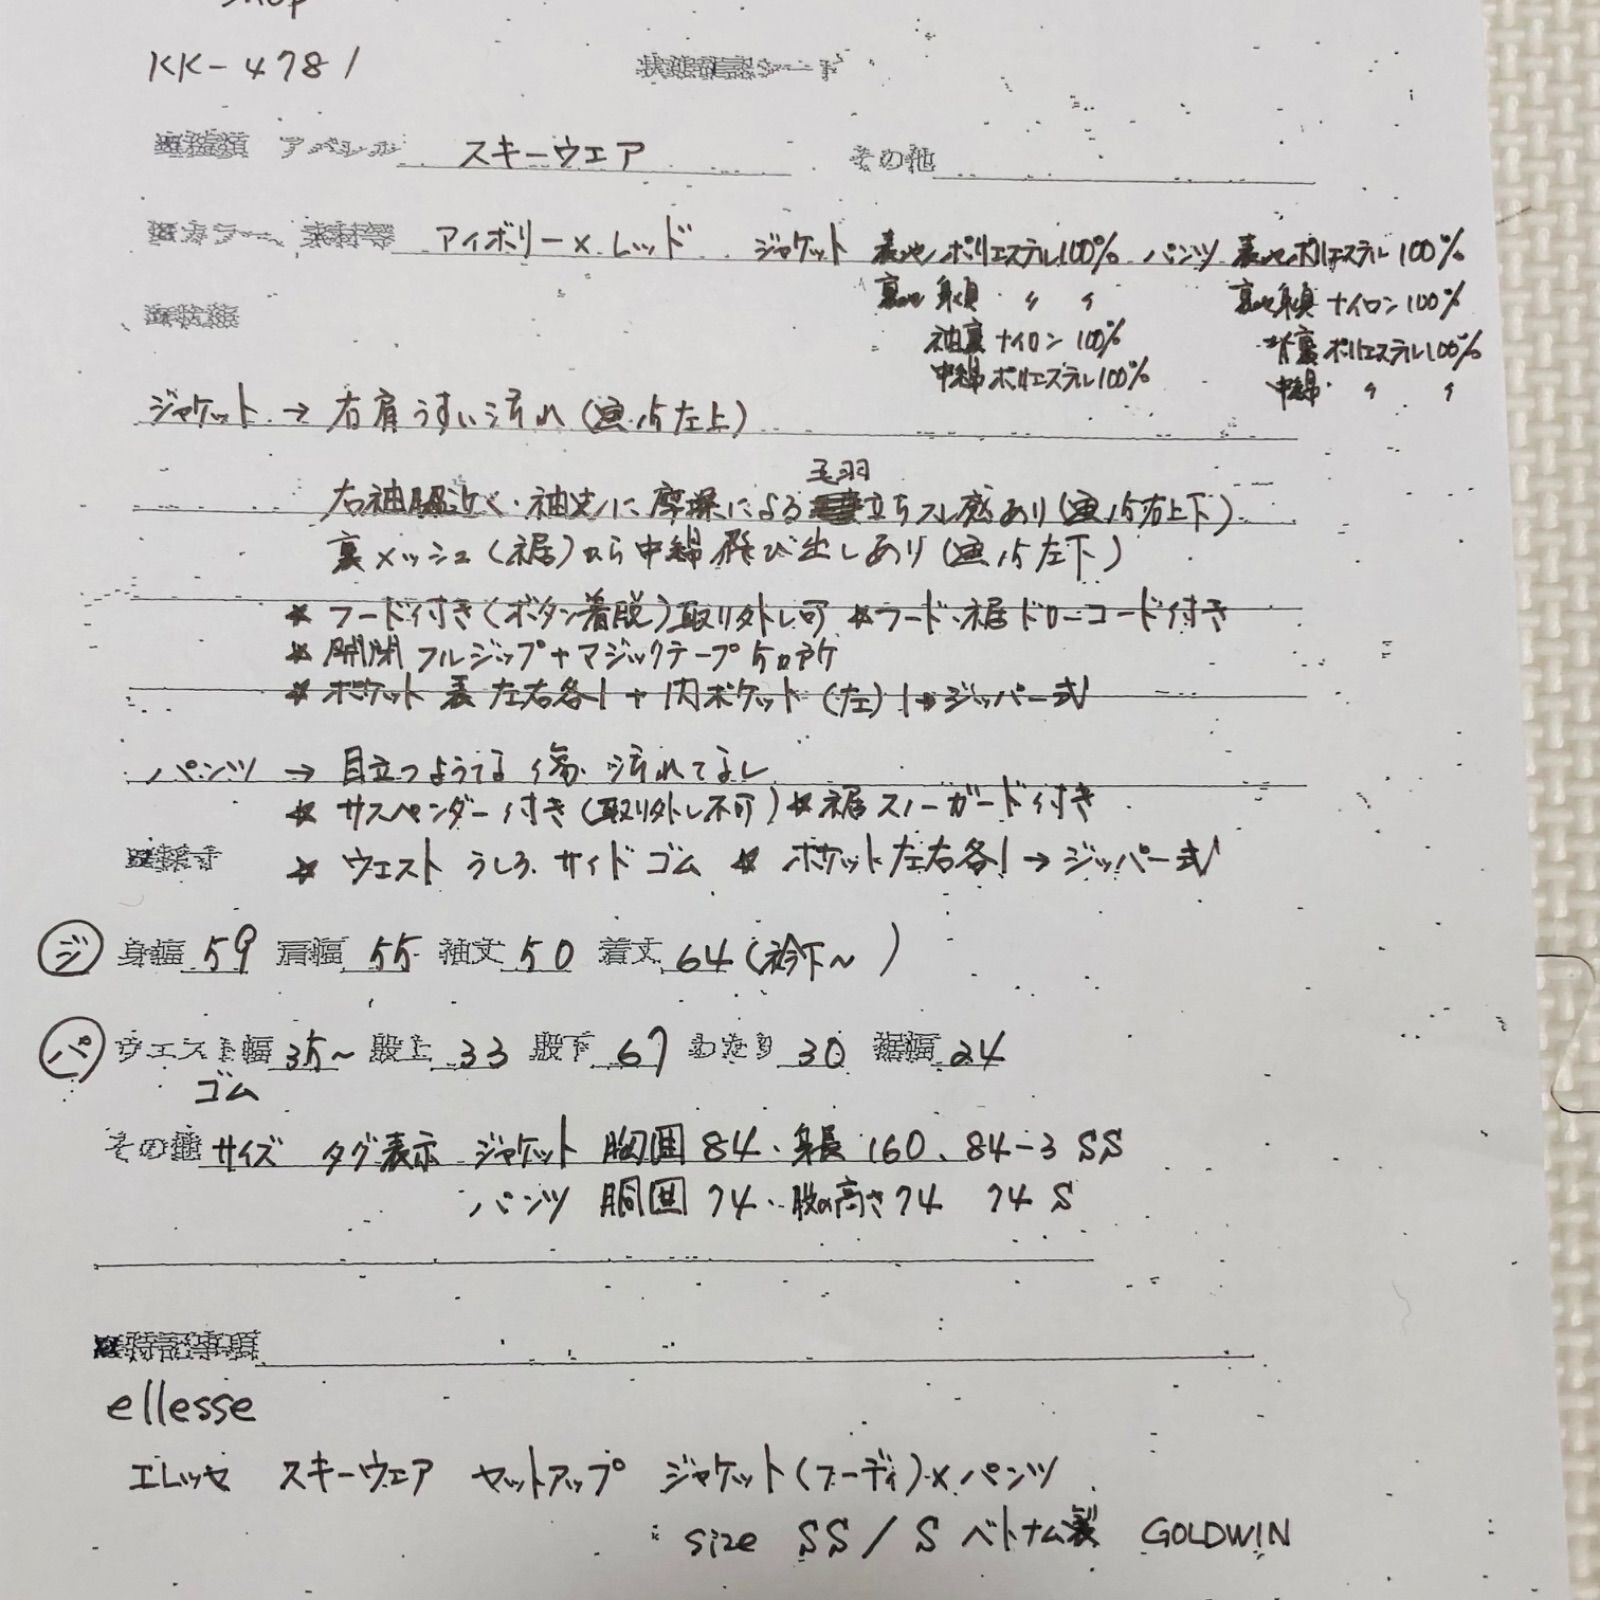 shop
KK-4781 状態確認シート
種類 アパレル スキーウェア その他
カラー、素材等 アイボリー×レッド ジャケット 表地ポリエステル100% パンツ 表地ポリエステル100%
裏地身頃 〃 〃 裏地身頃 ナイロン100%
袖裏 ナイロン 100% 裏 ポリエステル100%
中綿 ポリエステル100% 中綿 〃 〃
状態
ジャケット → 右肩うすい汚れ(画像左上)
毛羽
右袖脇近く・袖先に摩擦による立ちスレ感あり(画像右上下)
裏メッシュ(裾)から中綿飛び出しあり(画像左下)
* フード付き(ボタン着脱)取り外し可 *フード・裾ドローコード付き
* 開閉 フルジップ+マジックテープ 5ヵ所
* ポケット 表 左右各1 + 内ポケット(左)1→ジッパー式
パンツ → 目立つような傷、汚れてなし
* サスペンダー付き(取り外し不可) *裾スノーガード付き
採寸 * ウエスト うしろ、サイドゴム * ポケット左右各1→ジッパー式
ジ 身幅 59 肩幅 55 袖丈 50 着丈 64(衿下~ )
パ ウエスト幅 35~ 股上 33 股下 67 わたり 30 裾幅 24
ゴム
その他 サイズ タグ表示 ジャケット 胸囲84、身長160、84-3 SS
パンツ 胴囲 74、股の高さ74 74 S
特記事項
ellesse
エレッセ スキーウェア セットアップ ジャケット(フーディ)×パンツ
size SS/S ベトナム製 GOLDWIN